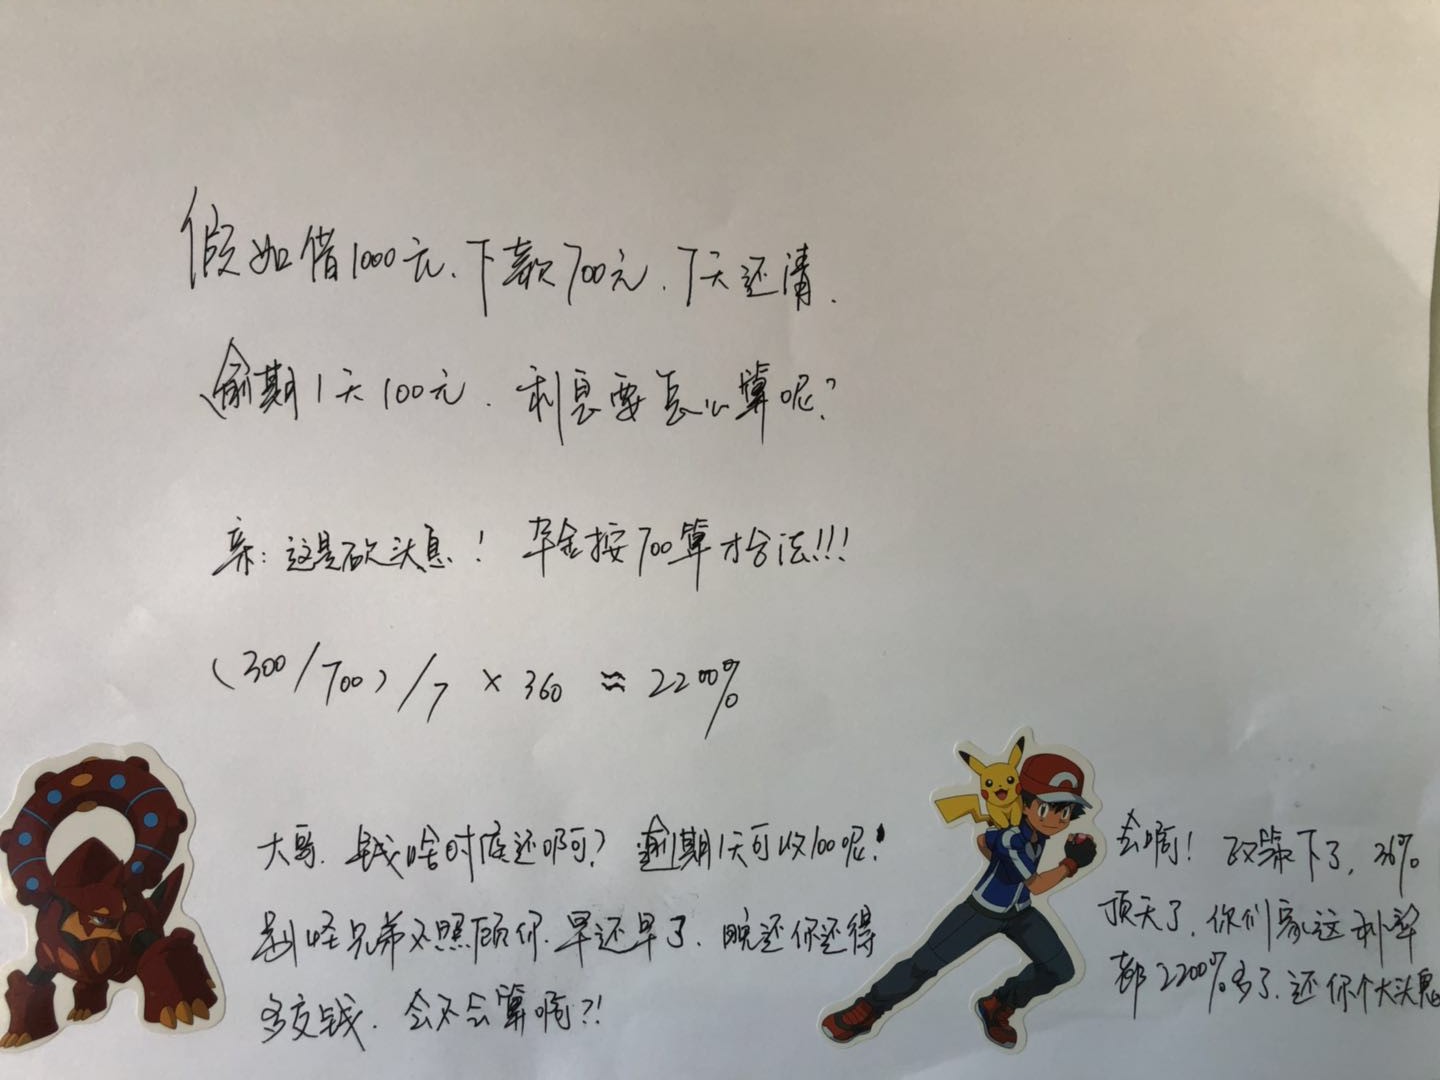 假如借1000元、下款700元、7天还清、
逾期1天100元、利息要怎么算呢?
亲:这是砍头息!本金按700算才合法!!!
(300/700)/7×360≈2200%
大哥、钱啥时候还啊?逾期1天可收100呢!
别怪兄弟不照顾你、早还早了、晚还你还得
多交钱、会不会算啊?!
会啊!政策下了,36%
顶天了,你们家这利率
都2200%多了、还你个大头鬼